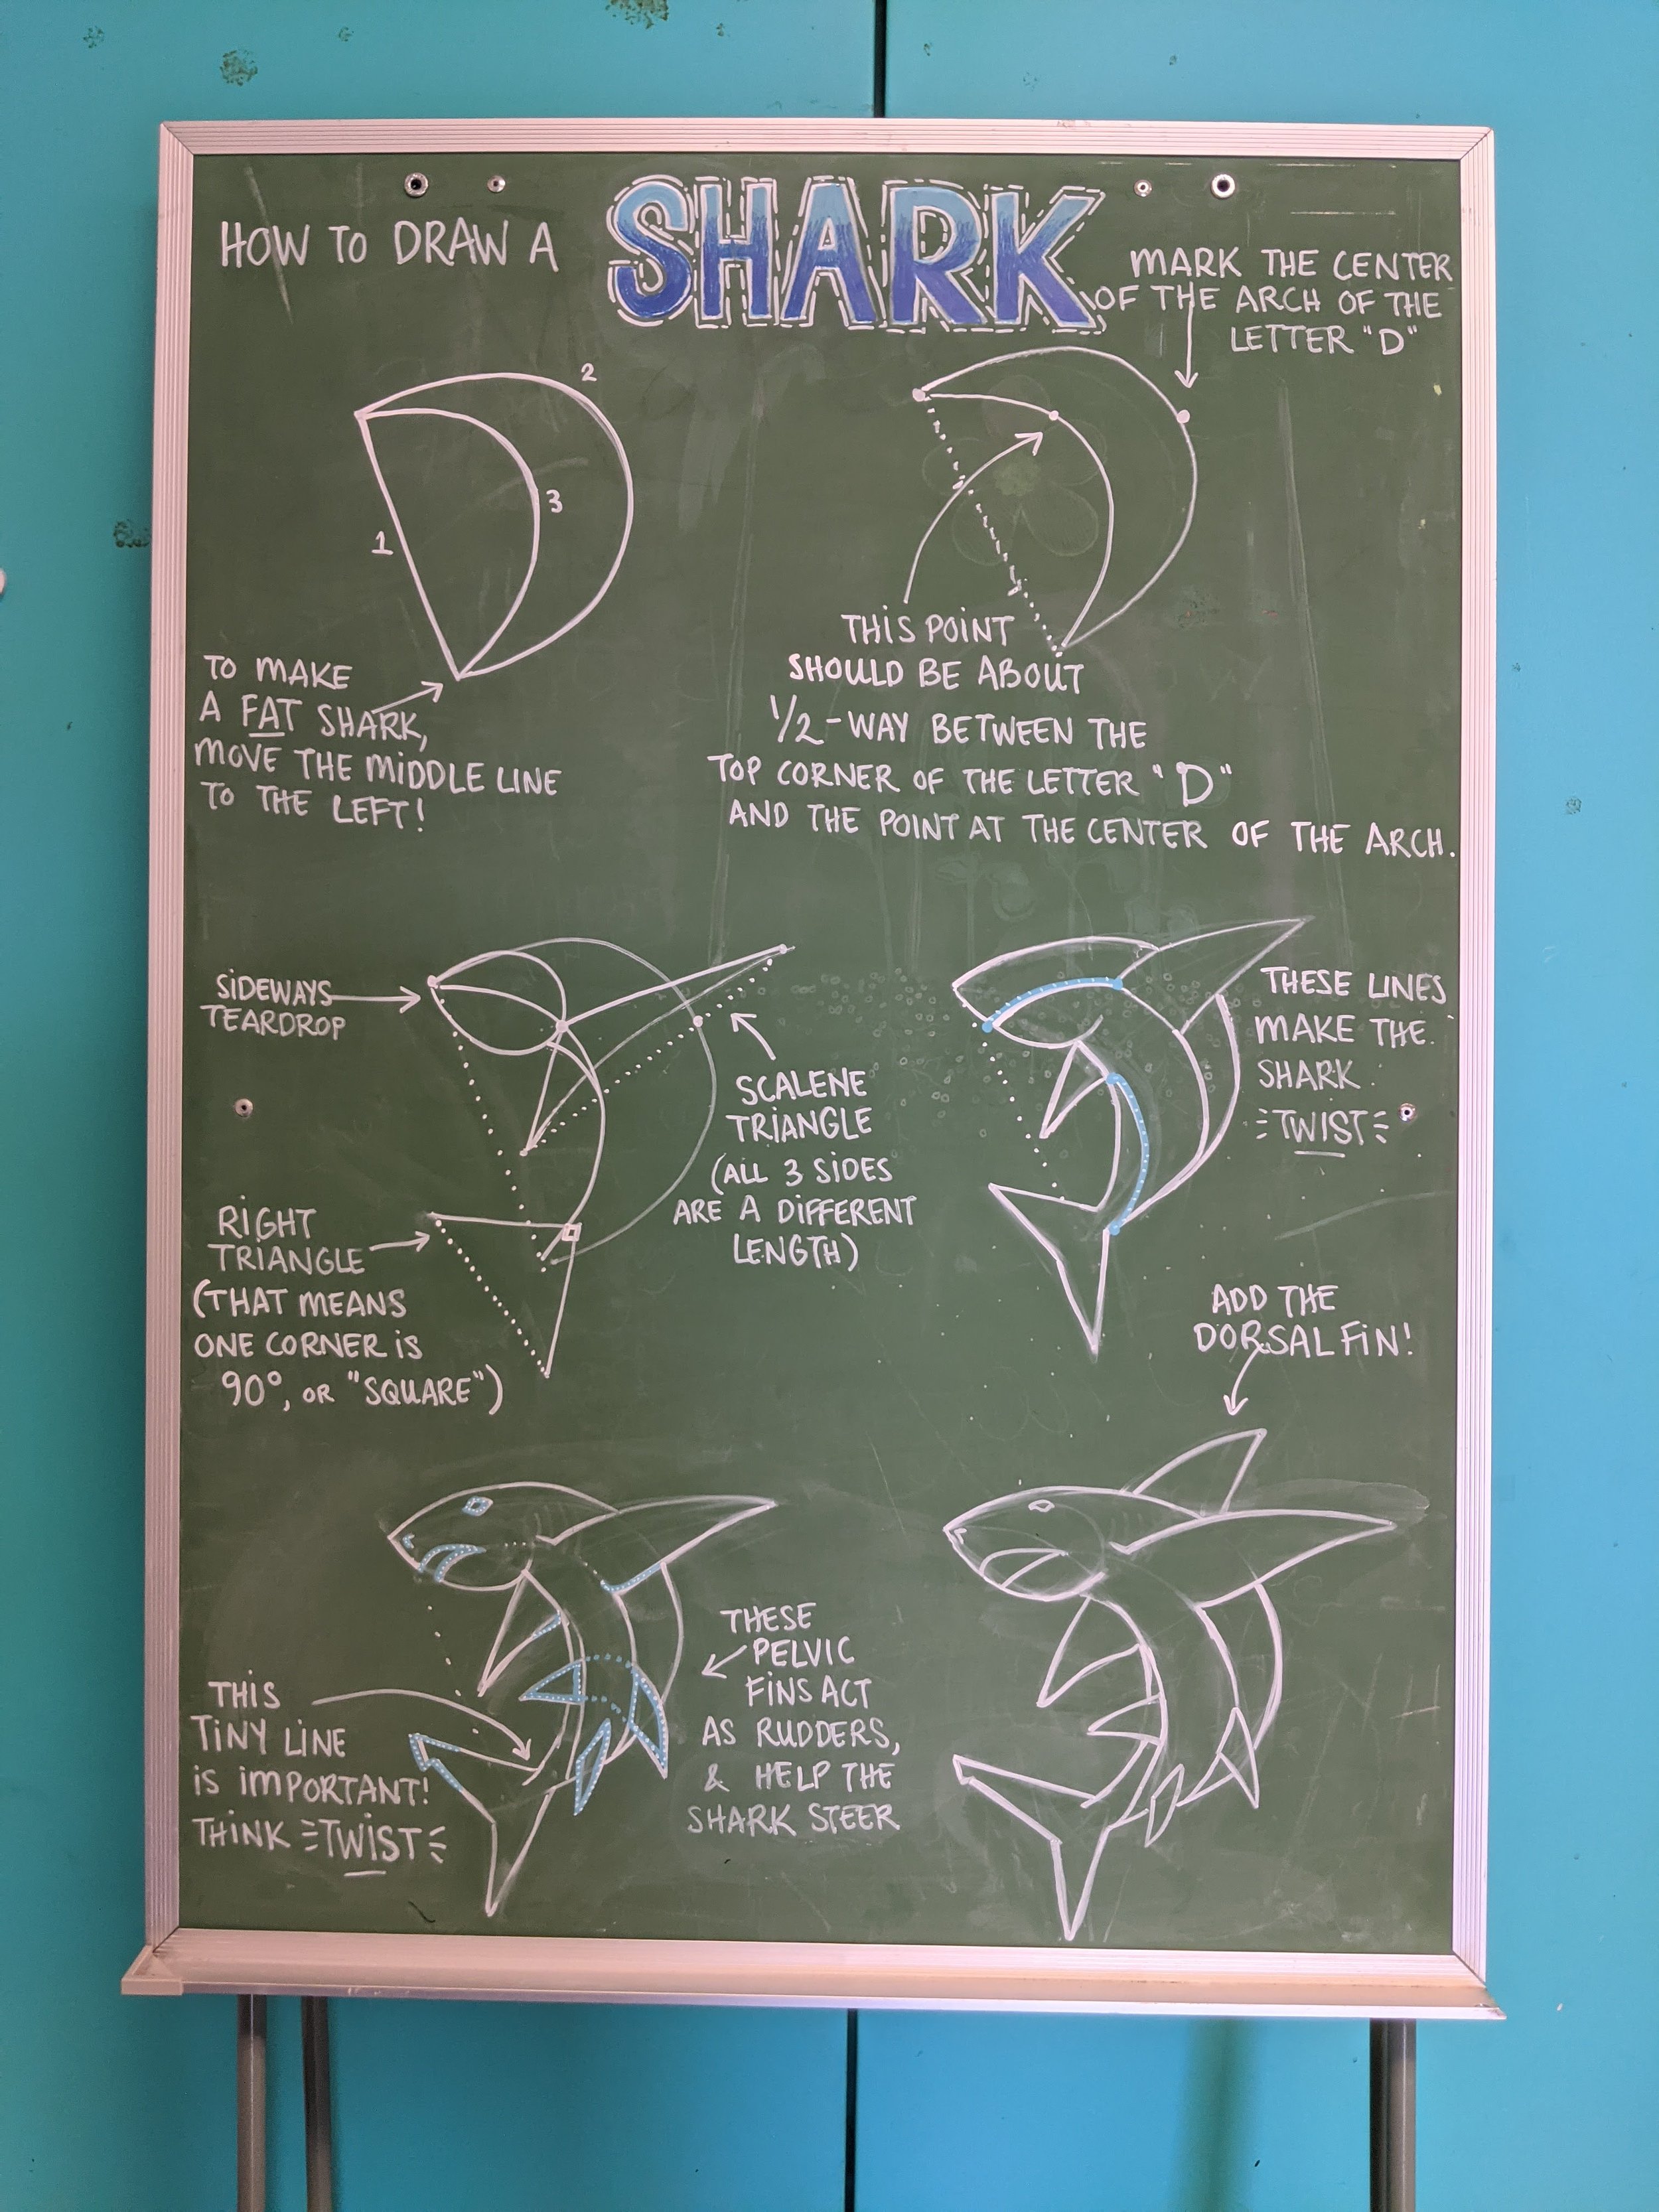 HOW TO DRAW A SHARK
MARK THE CENTER
OF THE ARCH OF THE
LETTER "D"
1
2
3
TO MAKE
A FAT SHARK,
MOVE THE MIDDLE LINE
TO THE LEFT!
THIS POINT
SHOULD BE ABOUT
1/2-WAY BETWEEN THE
TOP CORNER OF THE LETTER "D"
AND THE POINT AT THE CENTER OF THE ARCH.
SIDEWAYS
TEARDROP
SCALENE
TRIANGLE
(ALL 3 SIDES
ARE A DIFFERENT
LENGTH)
RIGHT
TRIANGLE
(THAT MEANS
ONE CORNER IS
90°, OR "SQUARE")
THESE LINES
MAKE THE
SHARK
TWIST
ADD THE
DORSAL FIN!
THIS
TINY LINE
IS IMPORTANT!
THINK TWIST
THESE
PELVIC
FINS ACT
AS RUDDERS,
& HELP THE
SHARK STEER